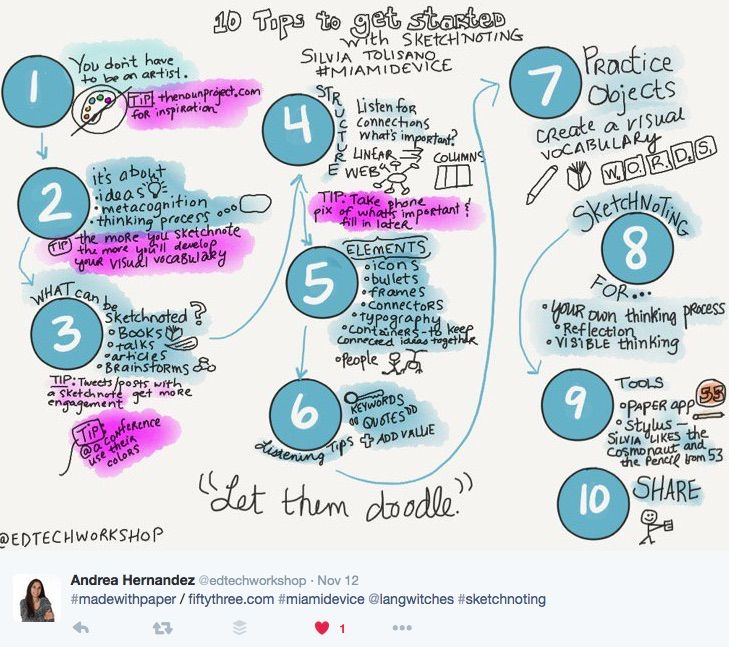 10 Tips to get started
with SKETCHNOTING
SILVIA TOLISANO
#MIAMIDEVICE
1
You don't have
to be an artist.
TIP thenounproject.com
for inspiration
2
it's about
ideas
• metacognition
• thinking process
TIP the more you sketchnote
the more you'll develop
your visual vocabulary
WHAT can be
3
sketchnoted?
• Books
• talks
• articles
• Brainstorms
TIP: Tweets/posts with
a sketchnote get more
engagement
TIP
@a conference
use their
colors
4
STRUCTURE
Listen for
connections
what's important?
LINEAR
WEB
COLUMNS
TIP: Take phone
pix of what's important &
fill in later
5
ELEMENTS
• icons
• bullets
• frames
• connectors
• typography
• containers - to keep
connected ideas together
• People
6
Listening Tips
KEYWORDS
QUOTES
+ ADD VALUE
7
Practice
Objects
create a visual
vocabulary
W.O.R.D.S.
SKETCHNOTING
8
FOR...
• your own thinking process
• Reflection
• visible thinking
9
TOOLS
• PAPER app 53
• Stylus -
SILVIA LIKES the
Cosmonaut and
the Pencil from 53
10
SHARE
"Let them doodle."
@EDTECHWORKSHOP
Andrea Hernandez @edtechworkshop · Nov 12
#madewithpaper / fiftythree.com #miamidevice @langwitches #sketchnoting
1